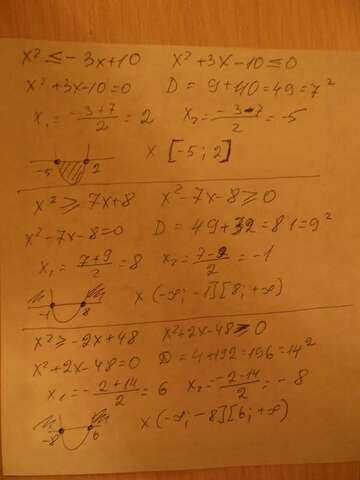 x² ≤ -3x+10 x²+3x-10 ≤ 0
x²+3x-10=0 D = 9+40=49=7²
x₁ = (-3+7)/2 = 2 x₂ = (-3-7)/2 = -5
-5 2 x [-5; 2]
x² ≥ 7x+8 x²-7x-8 ≥ 0
x²-7x-8=0 D = 49+32=81=9²
x₁ = (7+9)/2 = 8 x₂ = (7-9)/2 = -1
-1 8 x (-∞; -1][8; +∞)
x² ≥ -2x+48 x²+2x-48 ≥ 0
x²+2x-48=0 D = 4+192=196=14²
x₁ = -(2+14)/2 = 6 x₂ = (-2-14)/2 = -8
-8 6 x (-∞; -8][6; +∞)